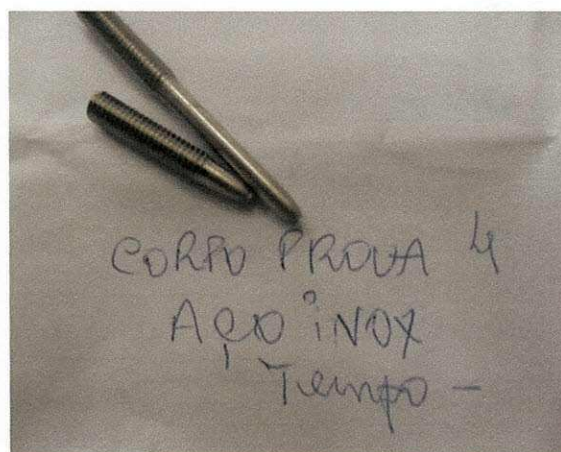 CORPO PROVA 4
AÇO iNOX
Tempo -